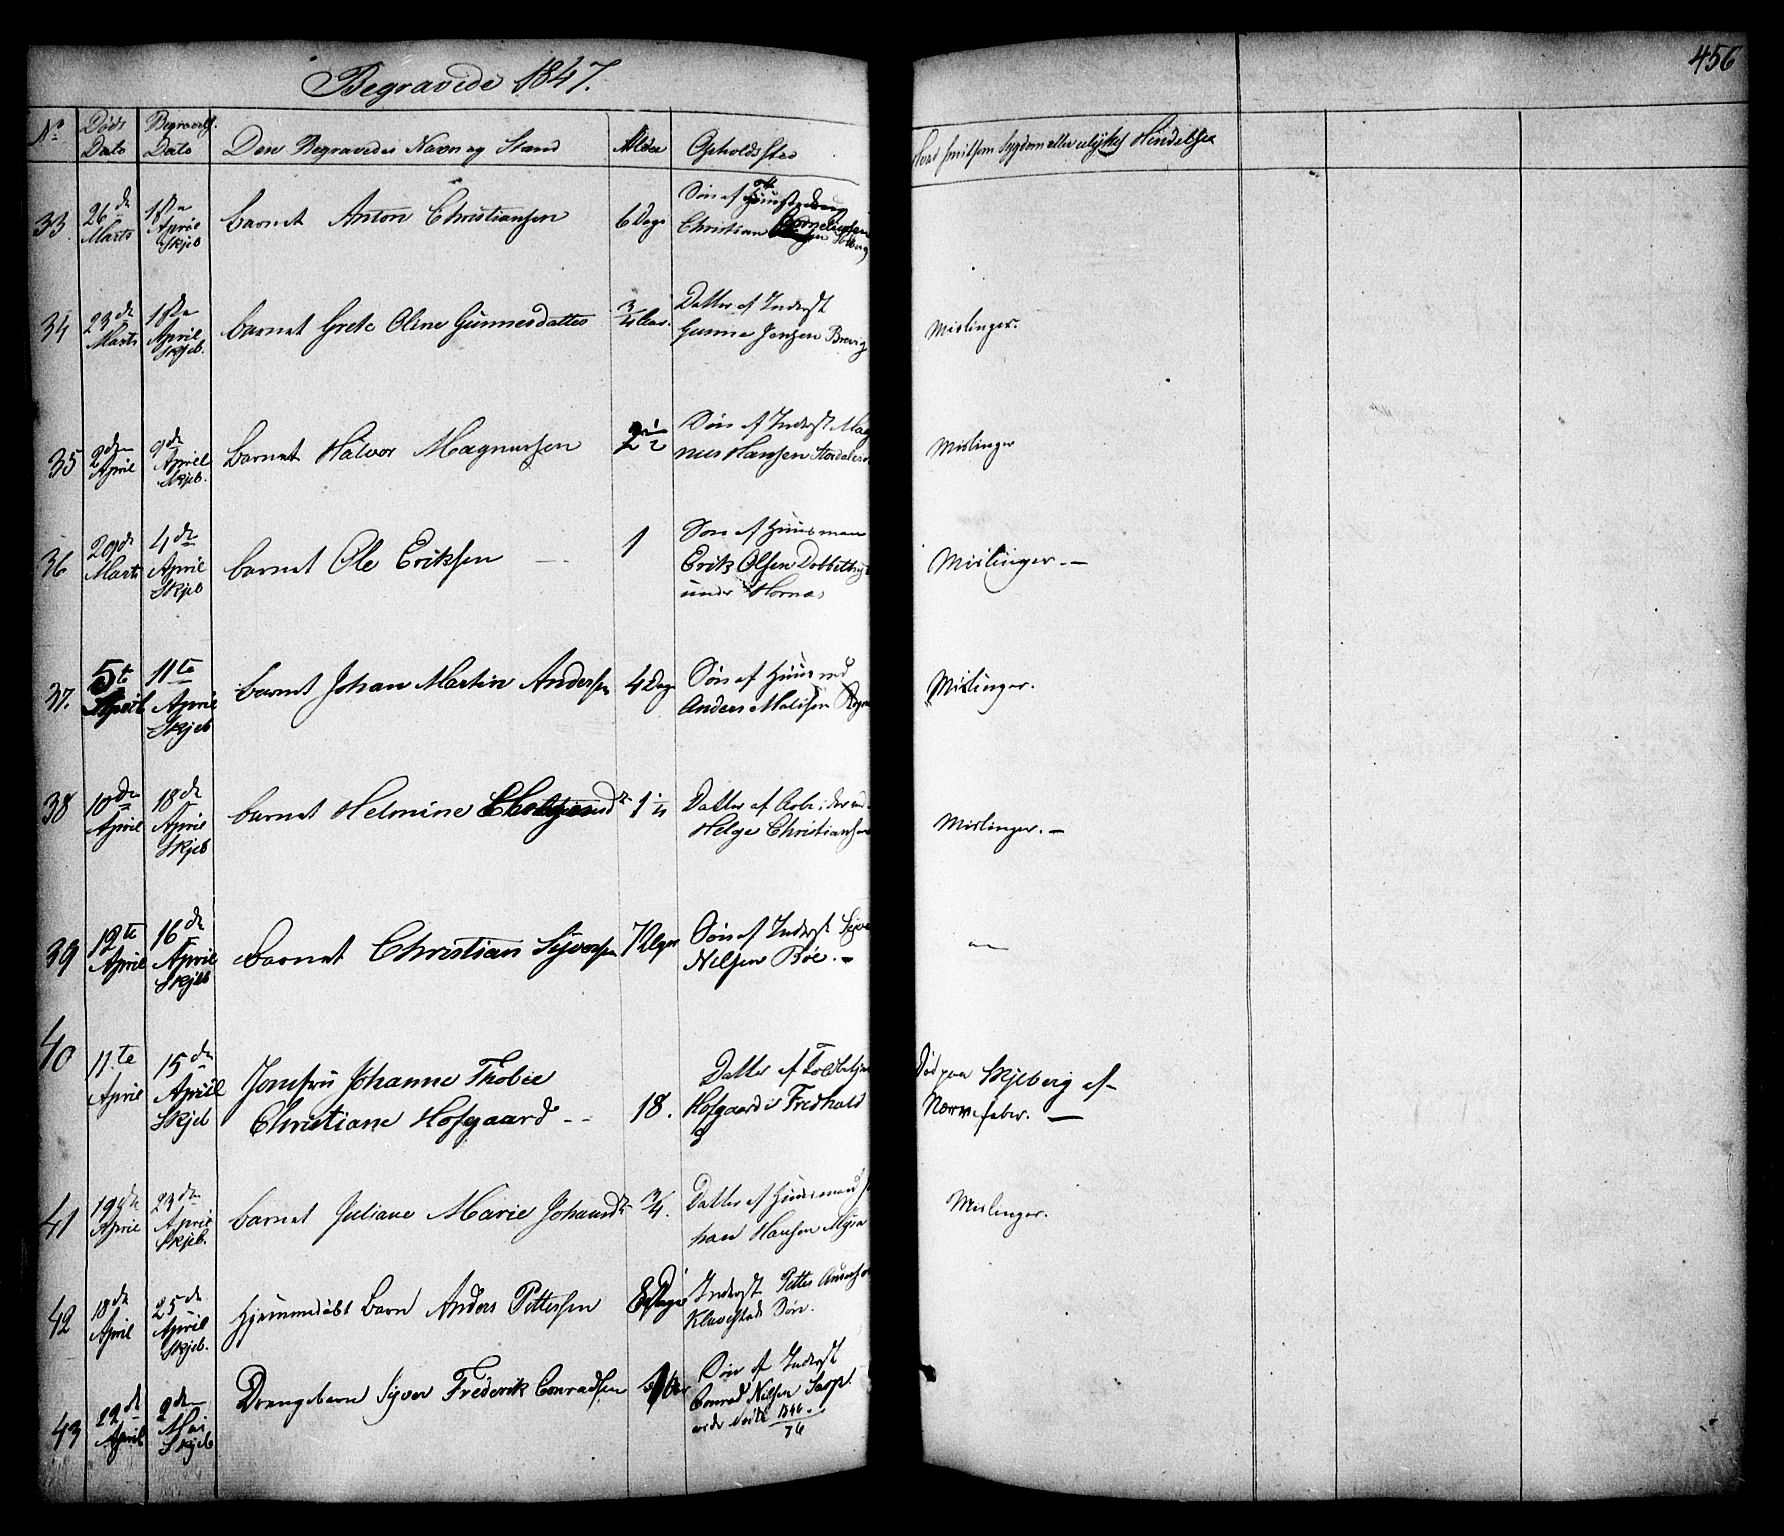 Begravede 1847.
456
No
Døds Dato
Begravels. Dato
Den Begravedes Navn og Stand
Alder
Opholdssted
Hvad smitsom Sygdom eller ulykkel Hendelse
33. 26de Marts 1ste April Skjeb barnet Anton Christiansen 6 Dage Søn af
Christian Corneliussen Solberg
34 23de Marts 1ste April Skjeb. barnet Grete Oline Gunnersdatter 3/4 Aar. Datter af Inderst
Gunner Jensen Brevig
Mislinger.
35 2den April 9de April Skjeb. barnet Halvor Magnussen 2 1/2 Søn af Inderst Mag
nus Hansen
Mislinger
36 29de Marts 4de April Skjeb barnet Ole Eriksen — 1 Søn af Huusmann
Erik Olsen
under Hornæs
Mislinger. —
37. 5te April 11te April Skjeb barnet Johan Martin Andersen 4 Dage Søn af Huusmd
Anders
Mislinger.
38 10de April 18de April Skjeb barnet Helmine Helgesd 1 1/4 Datter af Arbeider
Helge Christiansen
Mislinger. —
39 12te April 16de April Skjeb barnet Christian Syversen 7 Uger Søn af Inderst Syver
Nilsen Bøe. —
—
40 11te April 15de April Skjeb Jomfru Johanne Thobie
Christiane Hofgaard -- 18. Datter af Toldbetjent
Hofgaard i Fredhald
Død paa Skjeberg af
Nervefeber. —
41 19de April 23de April Skjeb. barnet Juliane Marie Johansd 3/4. Datter af Huusmand Jo
han Hansen Myra
Mislinger.
42 18de April 25de April Skjeb. Hjemmedøbt barn Anders Pettersen 8 Dage Inderst Petter
Klavestad Søn.
43 22de April 2den Mai Skjeb Drengebarn Syver Frederik Conradsen Søn af Inderst
Conrad Nilsen Sarp.
1846
76